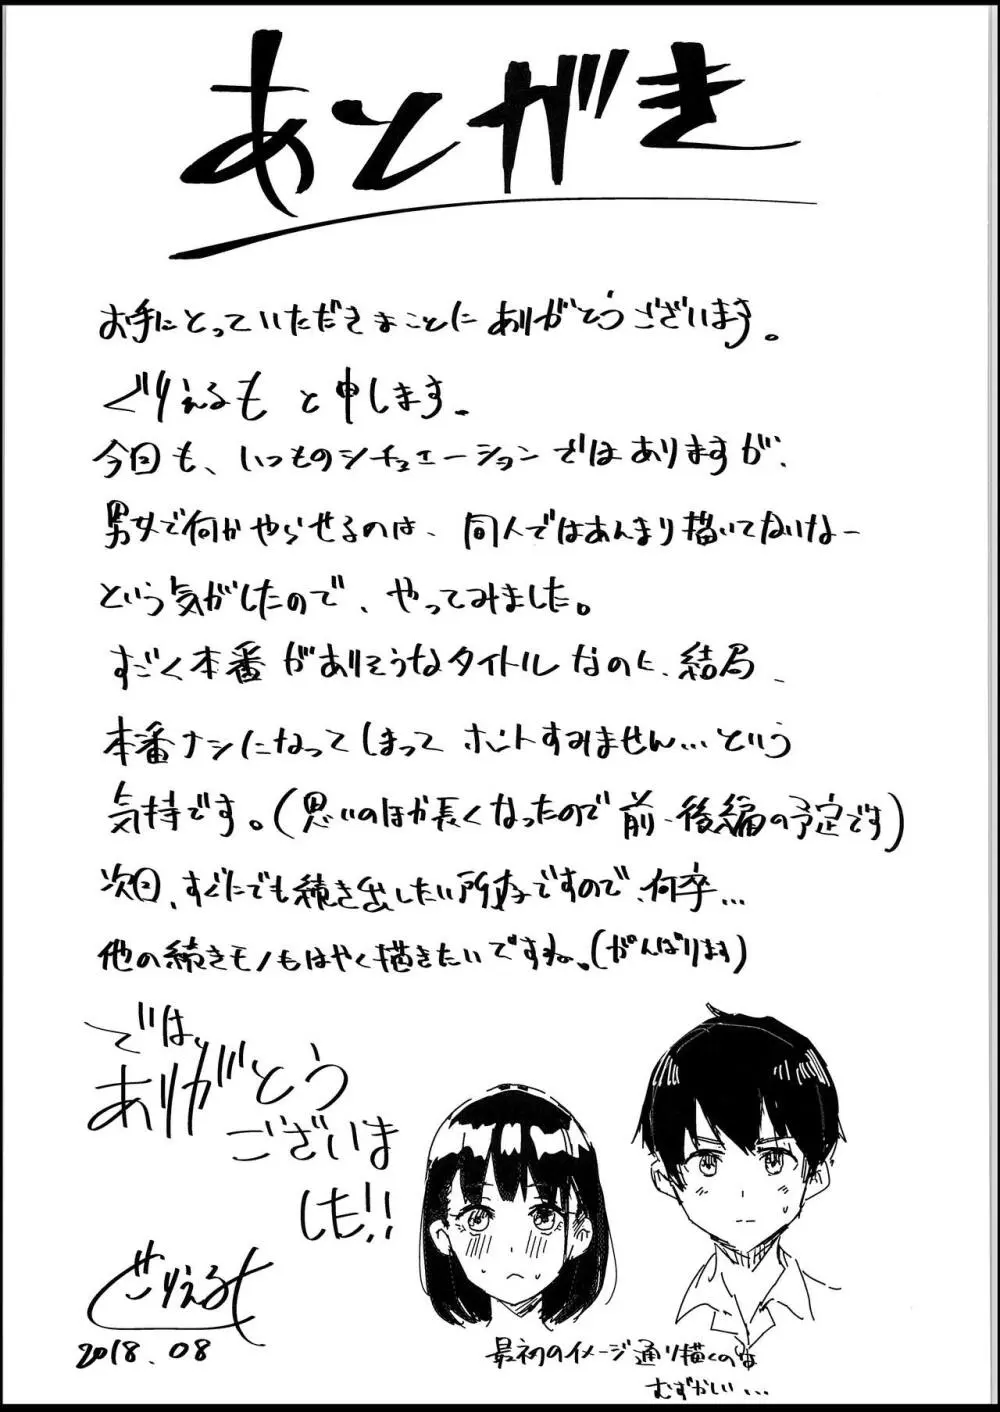 あとがき
お手にとっていただきまことにありがとうございます。
ぐりえるもと申します。
今回も、いつものシチュエーションではありますが、
男女で何かやらせるのは、同人ではあんまり描いてないなー
という気がしたので、やってみました。
すごく本番がありそうなタイトルなのに、結局、
本番ナシになってしまってホントすみません…という
気持です。(思いのほか長くなったので前・後編の予定です)
次回、すぐにでも続き出したい所存ですので、何卒…
他の続きモノもはやく描きたいですね。(がんばります)
では、
ありがとう
ございま
した!!
ぐりえるも
2018.08
最初のイメージ通り描くのは
むずかしい…